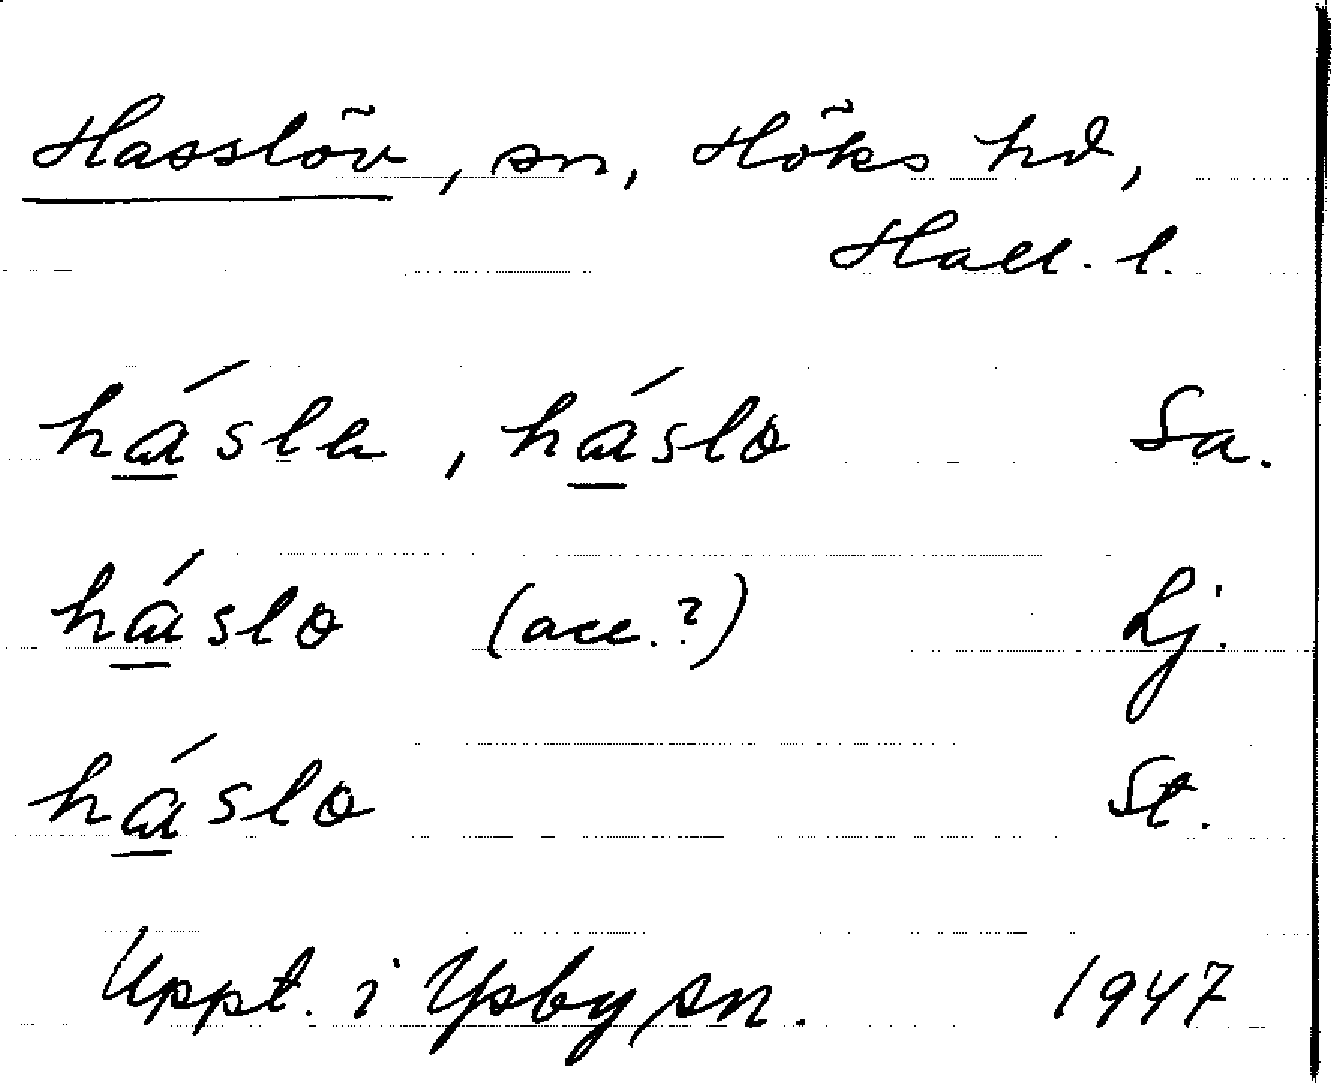 Hasslöv, sn, Höks hd,
Hall. l.
há̱slɵ, há̱slo Sa.
há̱slo (acc.?) Lj.
há̱slo St.
Uppt. i Ysby sn. 1947